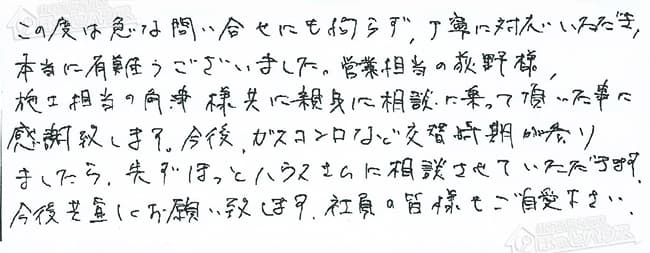 この度は急な問い合せにも拘らず、丁寧に対応いただき、
本当に有難うございました。営業担当の荻野様、
施工担当の角津様共に親身に相談に乗って頂いた事に
感謝致します。今後、ガスコンロなど交替時期が参り
ましたら、先ずほっとハウスさんに相談させていただきます。
今後共宜しくお願い致します。社員の皆様もご自愛下さい。